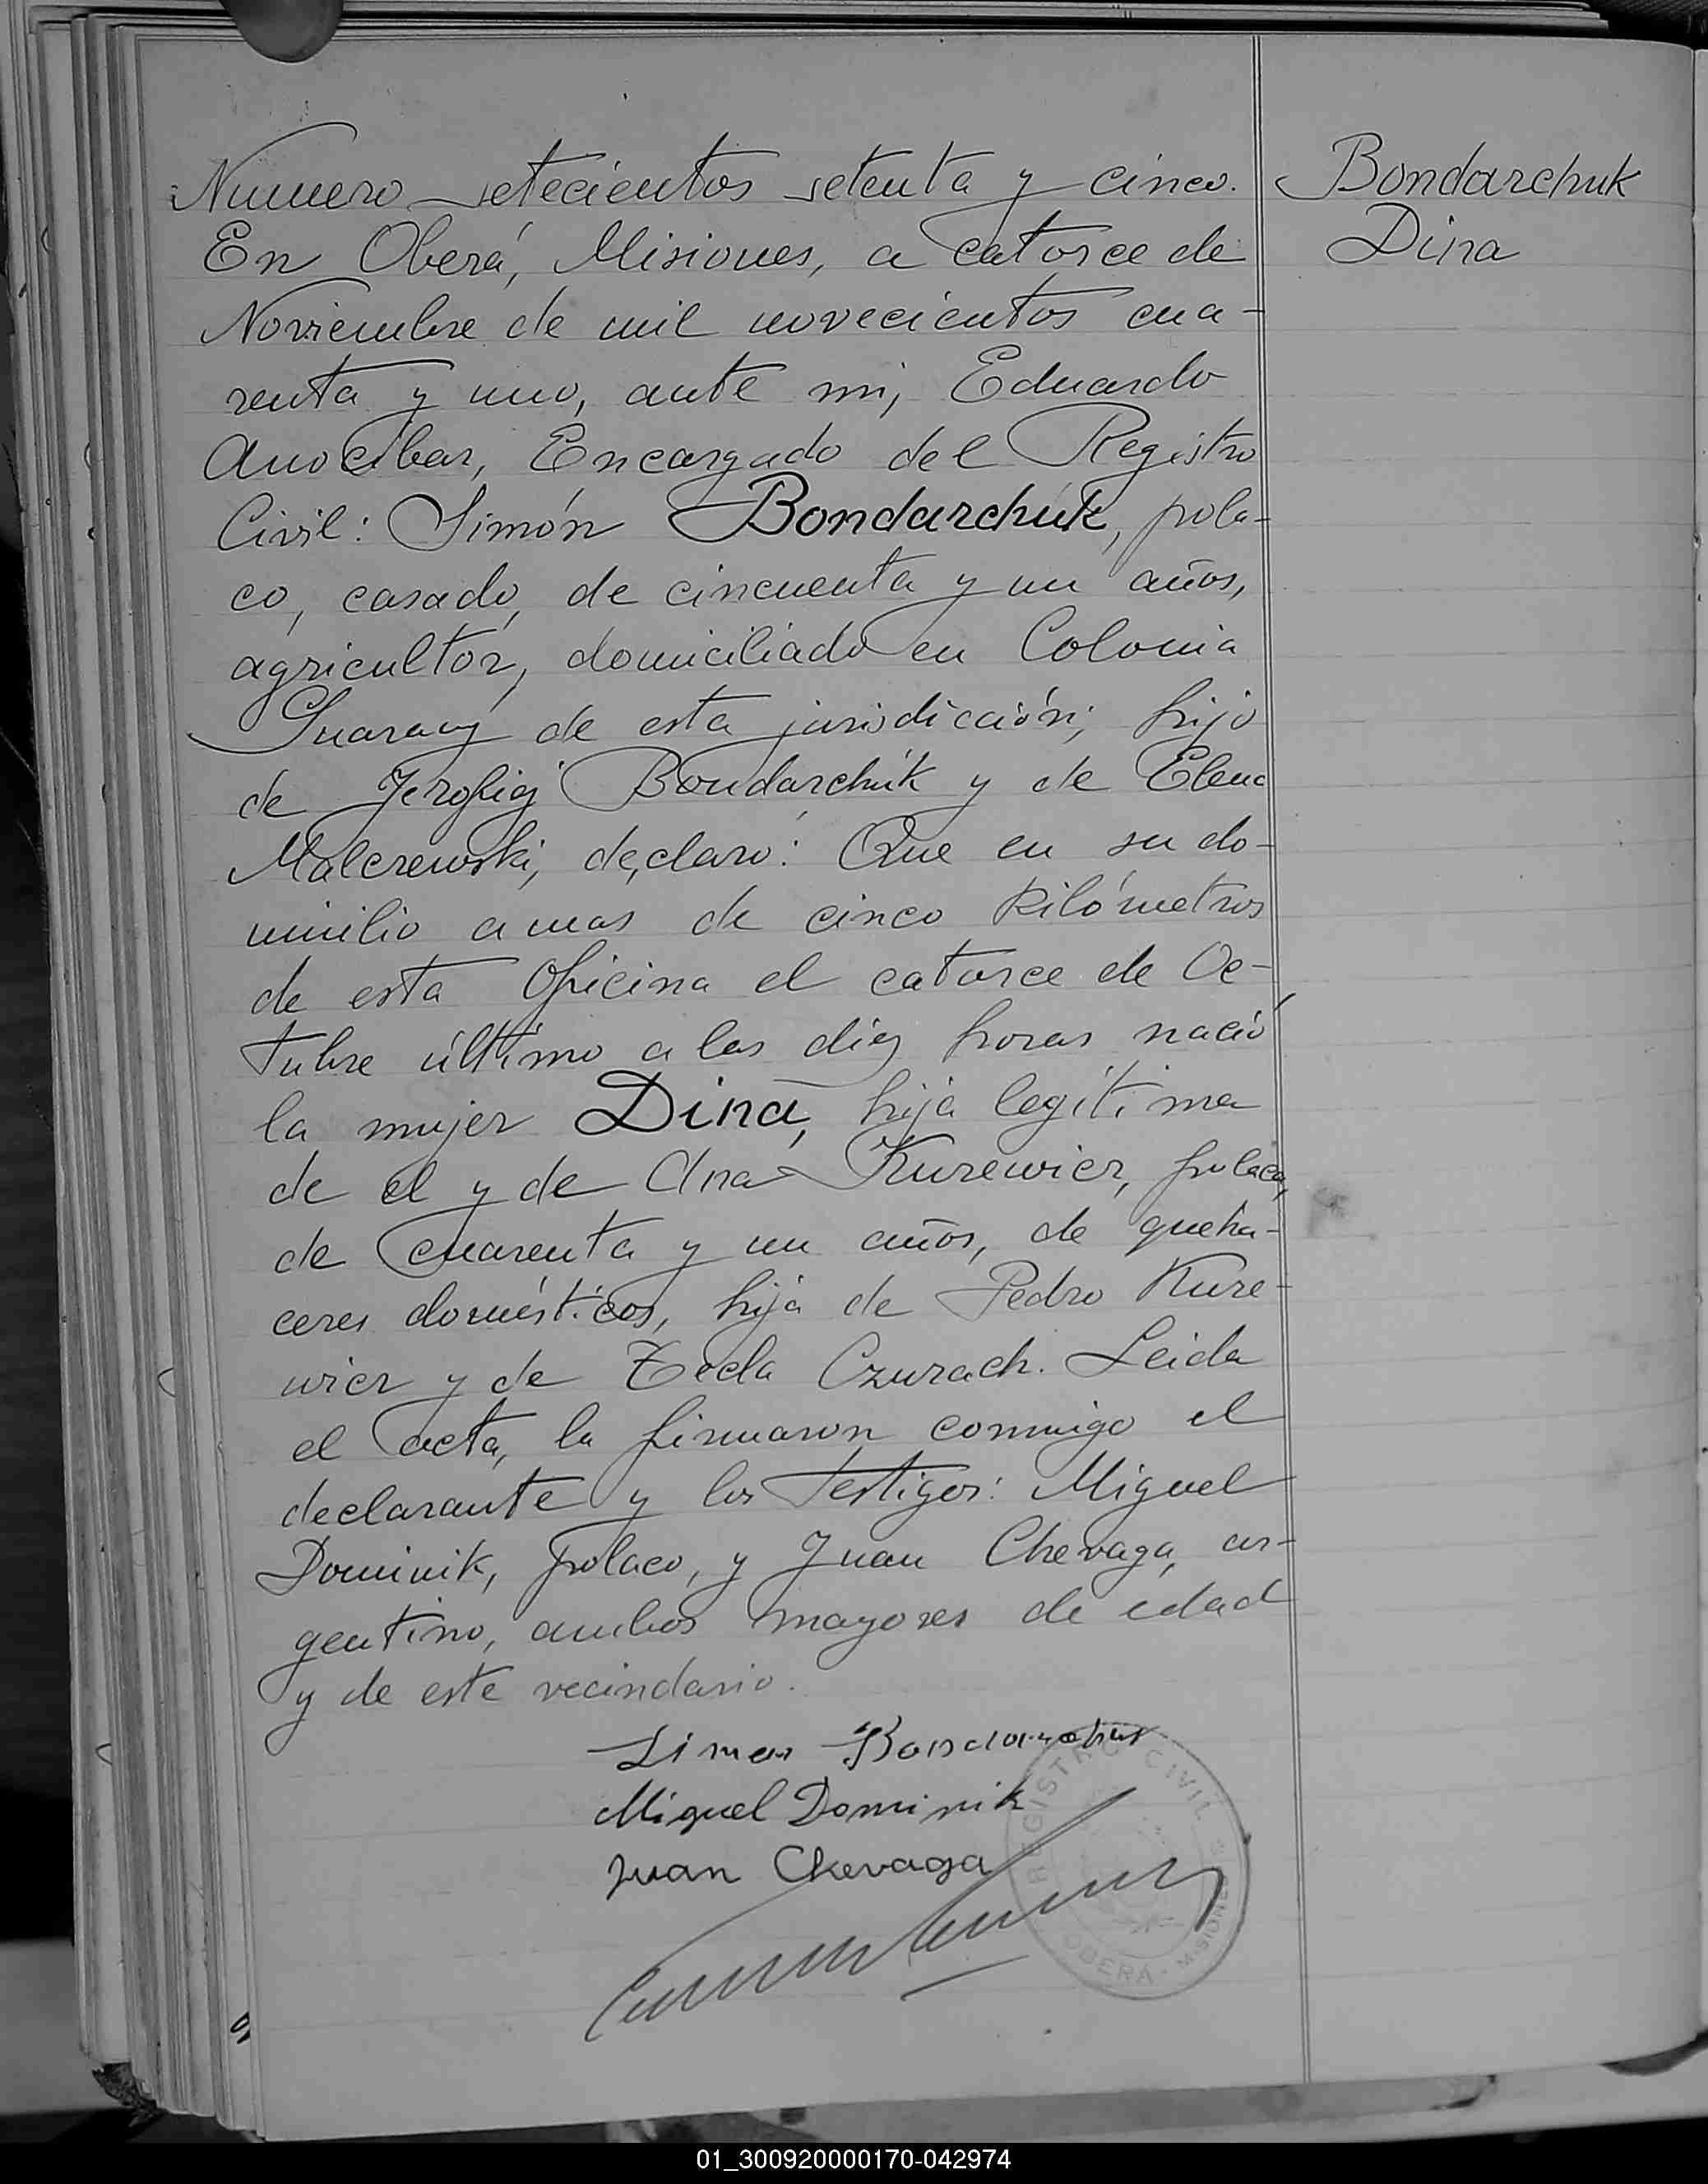 Numero setecientos setenta y cinco.
En Oberá, Misiones, a catorce de
Noviembre de mil novecientos cua-
renta y uno, ante mi, Eduardo
Anocibar, Encargado del Registro
Civil: Simón Bondarchuk, pola-
co, casado, de cincuenta y un años,
agricultor, domiciliado en Colonia
Guarany de esta jurisdicción; hijo
de Jerofiej Bondarchuk y de Elena
Malczewski, declaró: Que en su do-
micilio a mas de cinco kilómetros
de esta Oficina el catorce de Oc-
tubre último a las diez horas nació
la mujer Dina, hija legítima
de el y de Ana Kurewicz, polaca,
de cuarenta y un años, de queha-
ceres domésticos, hija de Pedro Kure-
wicz y de Tecla Czurach. Leida
el acta, la firmaron conmigo el
declarante y los testigos: Miguel
Dominik, polaco, y Juan Chevaga, ar-
gentino, ambos mayores de edad
y de este vecindario.
Bondarchuk
Dina
Simon Bondarchuk
Miguel Dominik
Juan Chevaga
REGISTRO CIVIL
OBERÁ - MISIONES
01_300920000170-042974